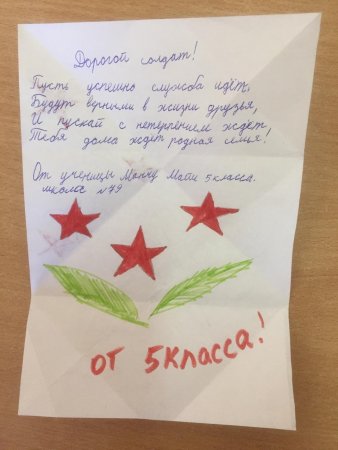 Дорогой солдат!
Пусть успешно служба идёт,
Будут верными в жизни друзья,
И пускай с нетерпением ждёт
Тебя дома ждёт родная семья!
От ученицы Мати 5 класса.
школы №79
от 5 класса!